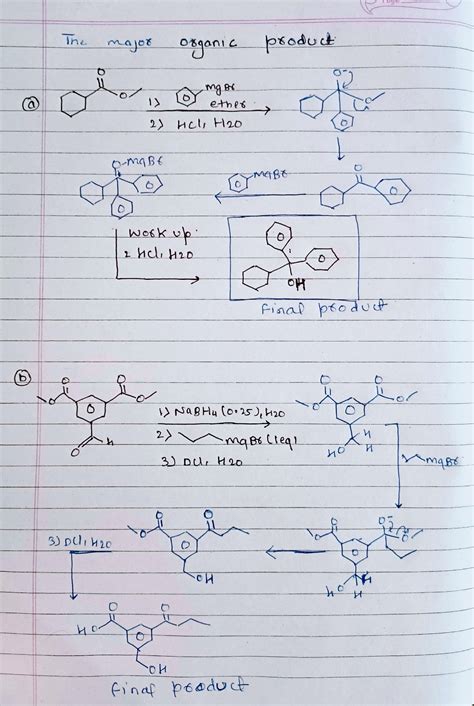 The major organic product
(a)
O
O
1) MgBr
ether
2) HCl, H2O
O-
O
O-MgBr
MgBr
O
Work up
2 HCl, H2O
OH
Final product
(b)
O
O
O
O
O
H
1) NaBH4 (0.25), H2O
2) MgBr (1eq)
3) DCl, H2O
O
O
O
O
HO
H
H
MgBr
3) DCl, H2O
O
O
O
OH
O
O
O-
O
HO
H
H
O
O
HO
OH
Final product